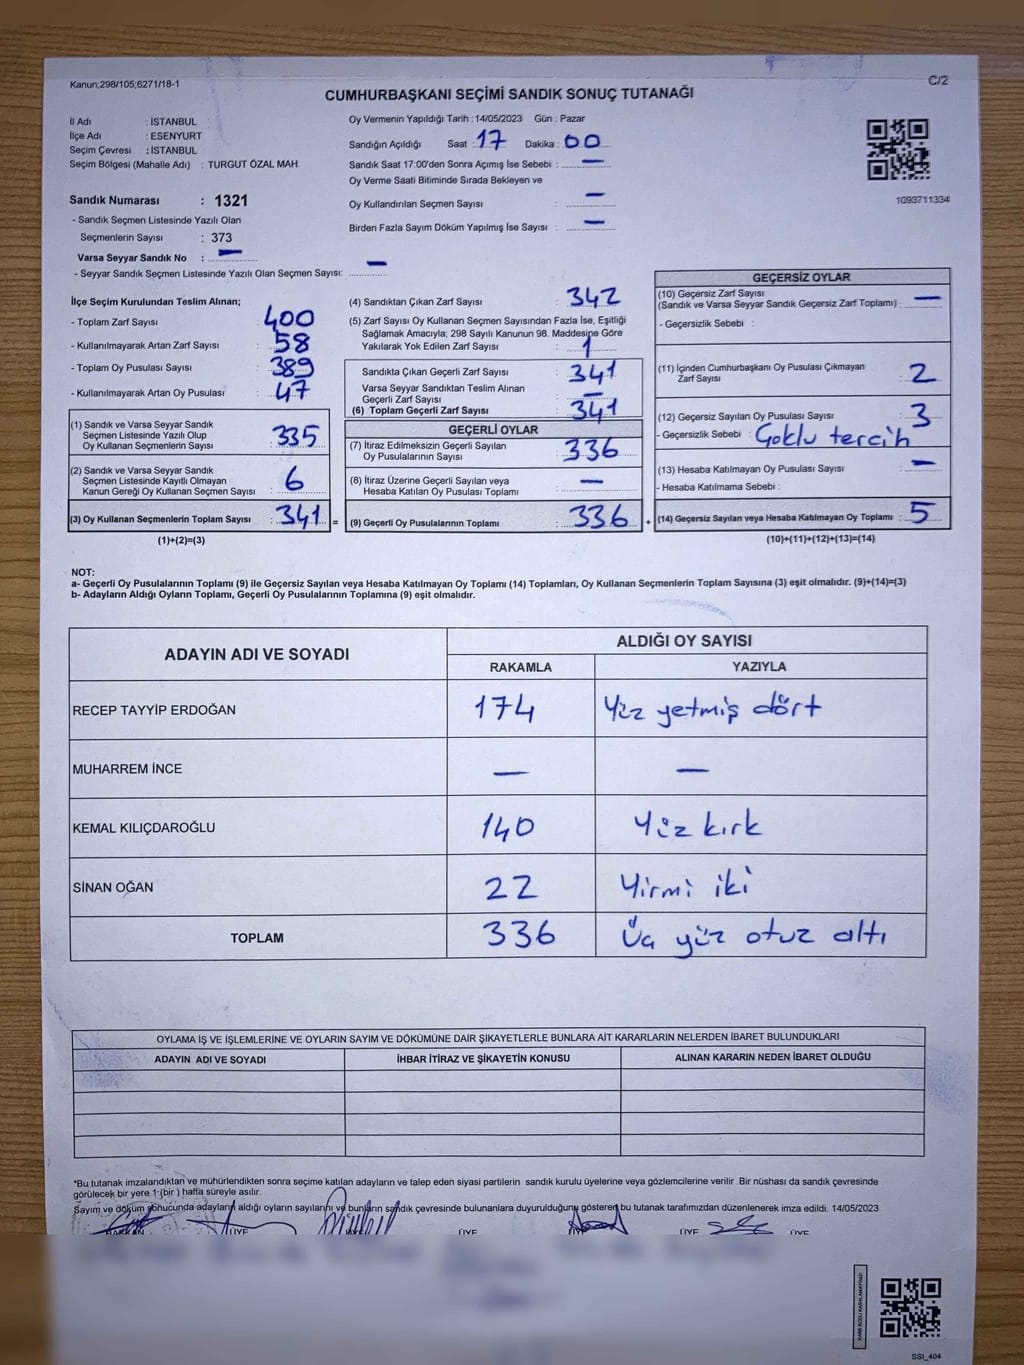 Kanun;298/105;6271/18-1
C/2
CUMHURBAŞKANI SEÇİMİ SANDIK SONUÇ TUTANAĞI
İl Adı : İSTANBUL
İlçe Adı : ESENYURT
Seçim Çevresi : İSTANBUL
Seçim Bölgesi (Mahalle Adı) : TURGUT ÖZAL MAH.
Sandık Numarası : 1321
- Sandık Seçmen Listesinde Yazılı Olan
Seçmenlerin Sayısı : 373
Varsa Seyyar Sandık No : —
- Seyyar Sandık Seçmen Listesinde Yazılı Olan Seçmen Sayısı: —
Oy Vermenin Yapıldığı Tarih : 14/05/2023 Gün : Pazar
Sandığın Açıldığı Saat : 17 Dakika : 00
Sandık Saat 17:00'den Sonra Açımış İse Sebebi : —
Oy Verme Saati Bitiminde Sırada Bekleyen ve
Oy Kullandırılan Seçmen Sayısı : —
Birden Fazla Sayım Döküm Yapılmış İse Sayısı : —
1093711334
İlçe Seçim Kurulundan Teslim Alınan;
- Toplam Zarf Sayısı : 400
- Kullanılmayarak Artan Zarf Sayısı : 58
- Toplam Oy Pusulası Sayısı : 389
- Kullanılmayarak Artan Oy Pusulası : 47
(1) Sandık ve Varsa Seyyar Sandık
Seçmen Listesinde Yazılı Olup
Oy Kullanan Seçmenlerin Sayısı : 335
(2) Sandık ve Varsa Seyyar Sandık
Seçmen Listesinde Kayıtlı Olmayan
Kanun Gereği Oy Kullanan Seçmen Sayısı : 6
(3) Oy Kullanan Seçmenlerin Toplam Sayısı : 341 =
(1)+(2)=(3)
(4) Sandıktan Çıkan Zarf Sayısı : 342
(5) Zarf Sayısı Oy Kullanan Seçmen Sayısından Fazla İse, Eşitliği
Sağlamak Amacıyla; 298 Sayılı Kanunun 98. Maddesine Göre
Yakılarak Yok Edilen Zarf Sayısı : 1
Sandıkta Çıkan Geçerli Zarf Sayısı : 341
Varsa Seyyar Sandıktan Teslim Alınan
Geçerli Zarf Sayısı : —
(6) Toplam Geçerli Zarf Sayısı : 341
GEÇERLİ OYLAR
(7) İtiraz Edilmeksizin Geçerli Sayılan
Oy Pusulalarının Sayısı : 336
(8) İtiraz Üzerine Geçerli Sayılan veya
Hesaba Katılan Oy Pusulası Toplamı : —
(9) Geçerli Oy Pusulalarının Toplamı : 336 +
GEÇERSİZ OYLAR
(10) Geçersiz Zarf Sayısı
(Sandık ve Varsa Seyyar Sandık Geçersiz Zarf Toplamı) : —
- Geçersizlik Sebebi :
(11) İçinden Cumhurbaşkanı Oy Pusulası Çıkmayan
Zarf Sayısı : 2
(12) Geçersiz Sayılan Oy Pusulası Sayısı : 3
- Geçersizlik Sebebi : Çoklu tercih
(13) Hesaba Katılmayan Oy Pusulası Sayısı : —
- Hesaba Katılmama Sebebi :
(14) Geçersiz Sayılan veya Hesaba Katılmayan Oy Toplamı : 5
(10)+(11)+(12)+(13)=(14)
NOT:
a- Geçerli Oy Pusulalarının Toplamı (9) ile Geçersiz Sayılan veya Hesaba Katılmayan Oy Toplamı (14) Toplamları, Oy Kullanan Seçmenlerin Toplam Sayısına (3) eşit olmalıdır. (9)+(14)=(3)
b- Adayların Aldığı Oyların Toplamı, Geçerli Oy Pusulalarının Toplamına (9) eşit olmalıdır.
ADAYIN ADI VE SOYADI
ALDIĞI OY SAYISI
RAKAMLA YAZIYLA
RECEP TAYYİP ERDOĞAN 174 Yüz yetmiş dört
MUHARREM İNCE — —
KEMAL KILIÇDAROĞLU 140 Yüz kırk
SİNAN OĞAN 22 Yirmi iki
TOPLAM 336 Üç yüz otuz altı
OYLAMA İŞ VE İŞLEMLERİNE VE OYLARIN SAYIM VE DÖKÜMÜNE DAİR ŞİKAYETLERLE BUNLARA AİT KARARLARIN NELERDEN İBARET BULUNDUKLARI
ADAYIN ADI VE SOYADI İHBAR İTİRAZ VE ŞİKAYETİN KONUSU ALINAN KARARIN NEDEN İBARET OLDUĞU
*Bu tutanak imzalandıktan ve mühürlendikten sonra seçime katılan adayların ve talep eden siyasi partilerin sandık kurulu üyelerine veya gözlemcilerine verilir .Bir nüshası da sandık çevresinde
görülecek bir yere 1 (bir ) hafta süreyle asılır.
Sayım ve döküm sonucunda adayların aldığı oyların sayılarını ve bunların sandık çevresinde bulunanlara duyurulduğunu gösteren bu tutanak tarafımızdan düzenlenerek imza edildi. 14/05/2023
BAŞKAN ÜYE ÜYE ÜYE ÜYE
KARE KODU KARALAMAYINIZ!
SSI_404